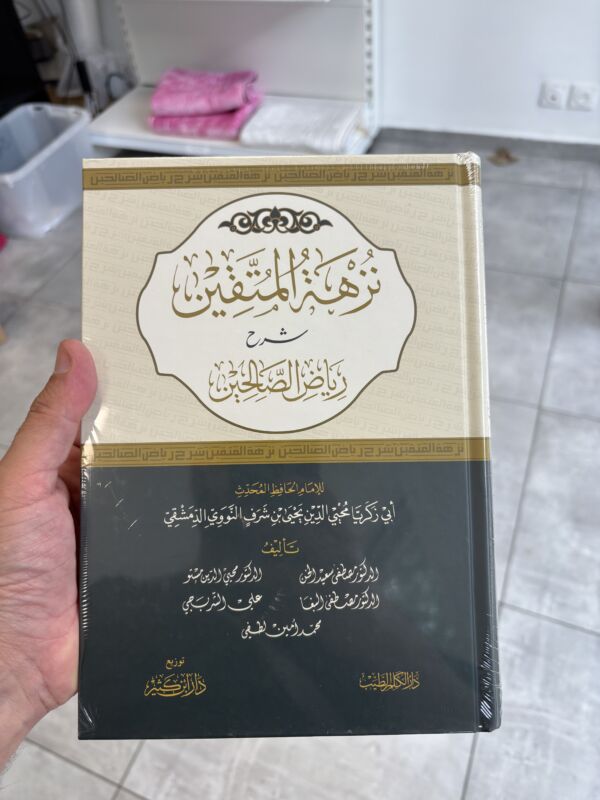 نزهة المتقين شرح رياض الصالحين نزهة المتقين شرح رياض الصالحين
نُزهَةُ المُتَّقِين
شرح
رِيَاضِ الصَّالِحِين
نزهة المتقين شرح رياض الصالحين نزهة المتقين شرح رياض الصالحين
للإمَامِ الحَافِظِ المُحَدِّثِ
أبي زَكَرِيَّا مُحْيِي الدِّين يَحْيَى بْن شَرَف النَّوَوِي الدِّمَشْقِيّ
تَأليفُ
الدكتور مصطفى سعيد الخن الدكتور محيي الدين مستو
الدكتور مصطفى البغا علي الشربجي
محمد أمين لطفي
دار الكلم الطيب
توزيع
دار ابن كثير